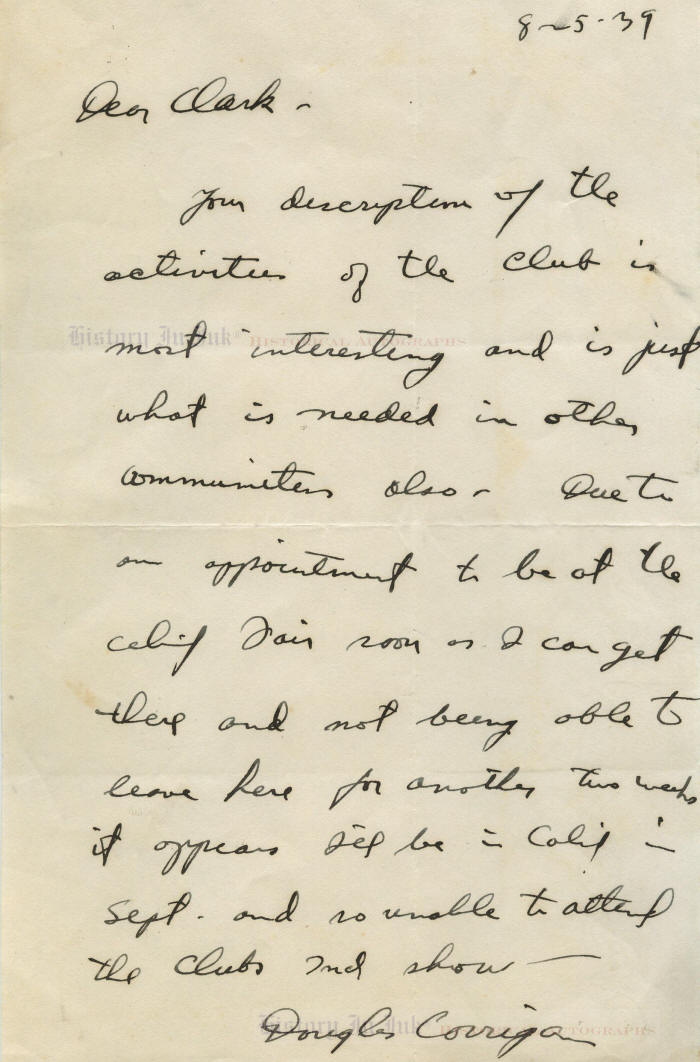 8-5-39
Dear Clark -
Your description of the
activities of the club is
History In Ink® Historical Autographs
most interesting and is just
what is needed in other
communities also - Due to
an appointment to be at the
Calif Fair soon as I can get
there and not being able to
leave here for another two weeks
it appears I'll be in Calif in
Sept. and so unable to attend
the clubs 2nd show —
Douglas Corrigan
History In Ink® Historical Autographs